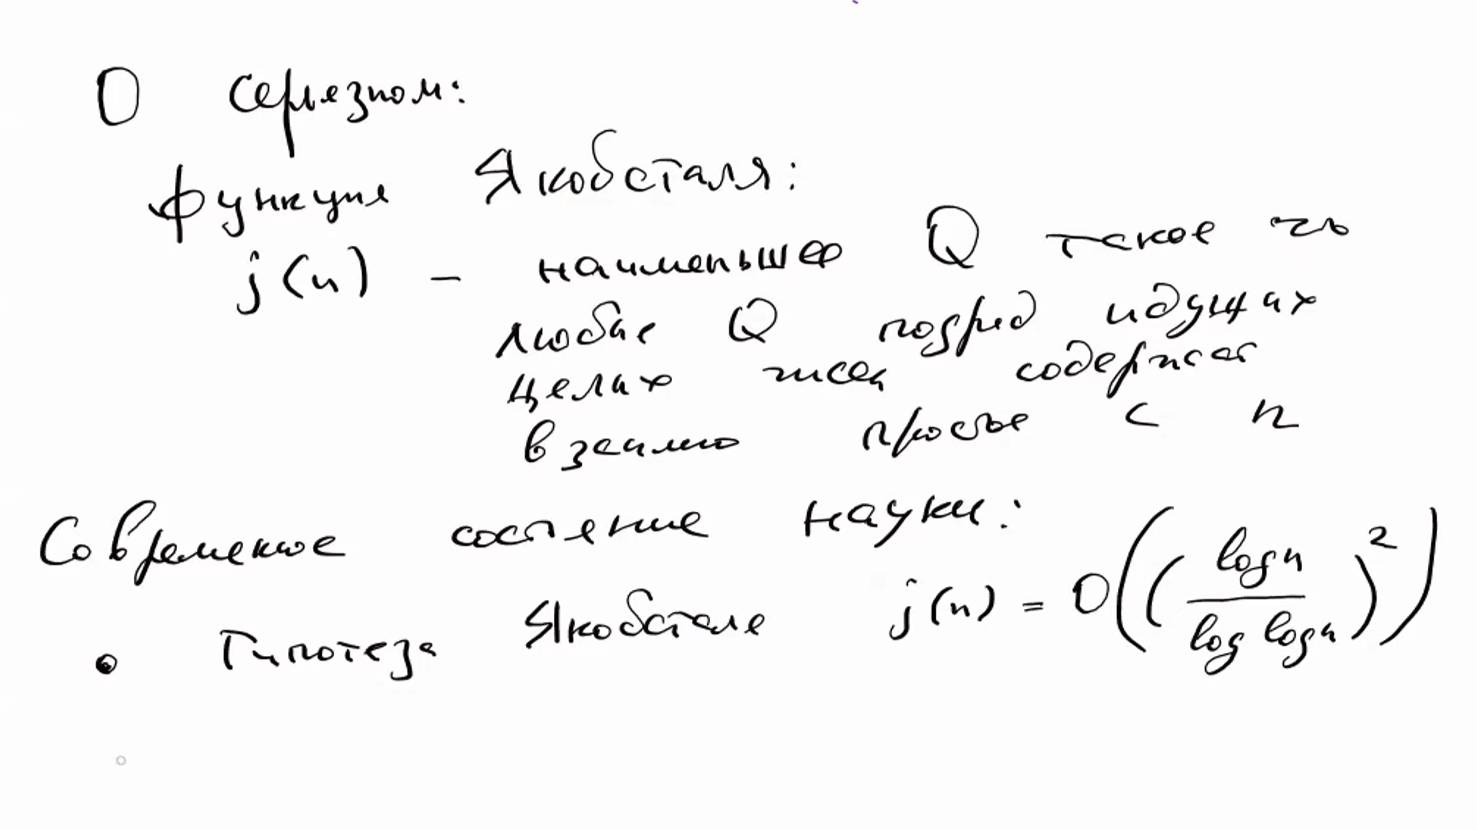 О серьезном:
функция Якобсталя:
j(n) – наименьшее Q такое что
любые Q подряд идущих
целых чисел содержат
взаимно простое с n
Современное состояние науки:
• Гипотеза Якобсталя j(n) = O((log n / log log n)²)